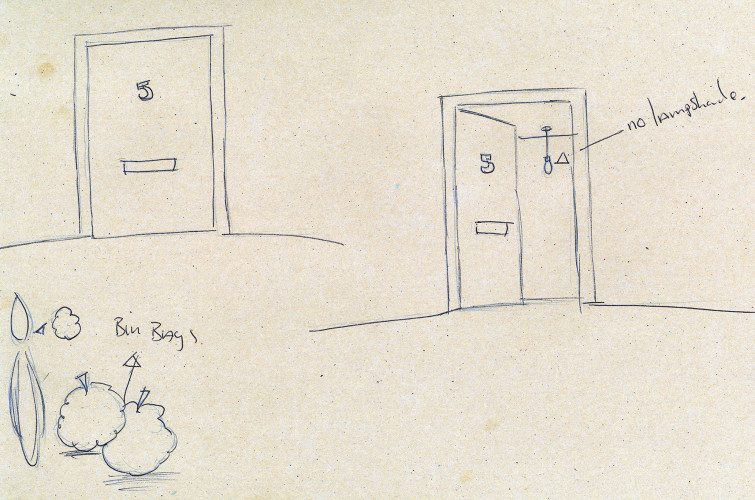 5
5
no lampshade.
Bin Bags